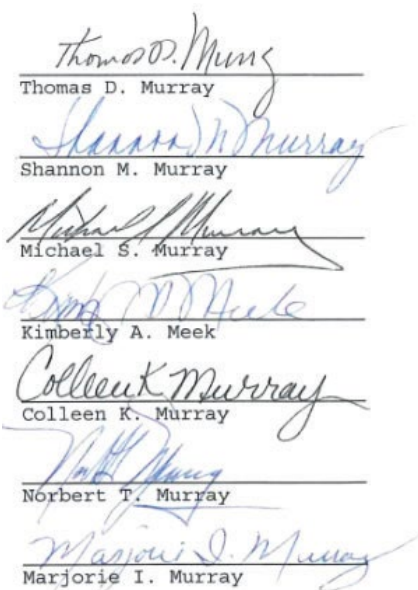 Thomas D. Murray
Thomas D. Murray
Shannon M Murray
Shannon M. Murray
Michael S Murray
Michael S. Murray
Meek
Kimberly A. Meek
Colleen K Murray
Colleen K. Murray
Murray
Norbert T. Murray
Marjorie I. Murray
Marjorie I. Murray